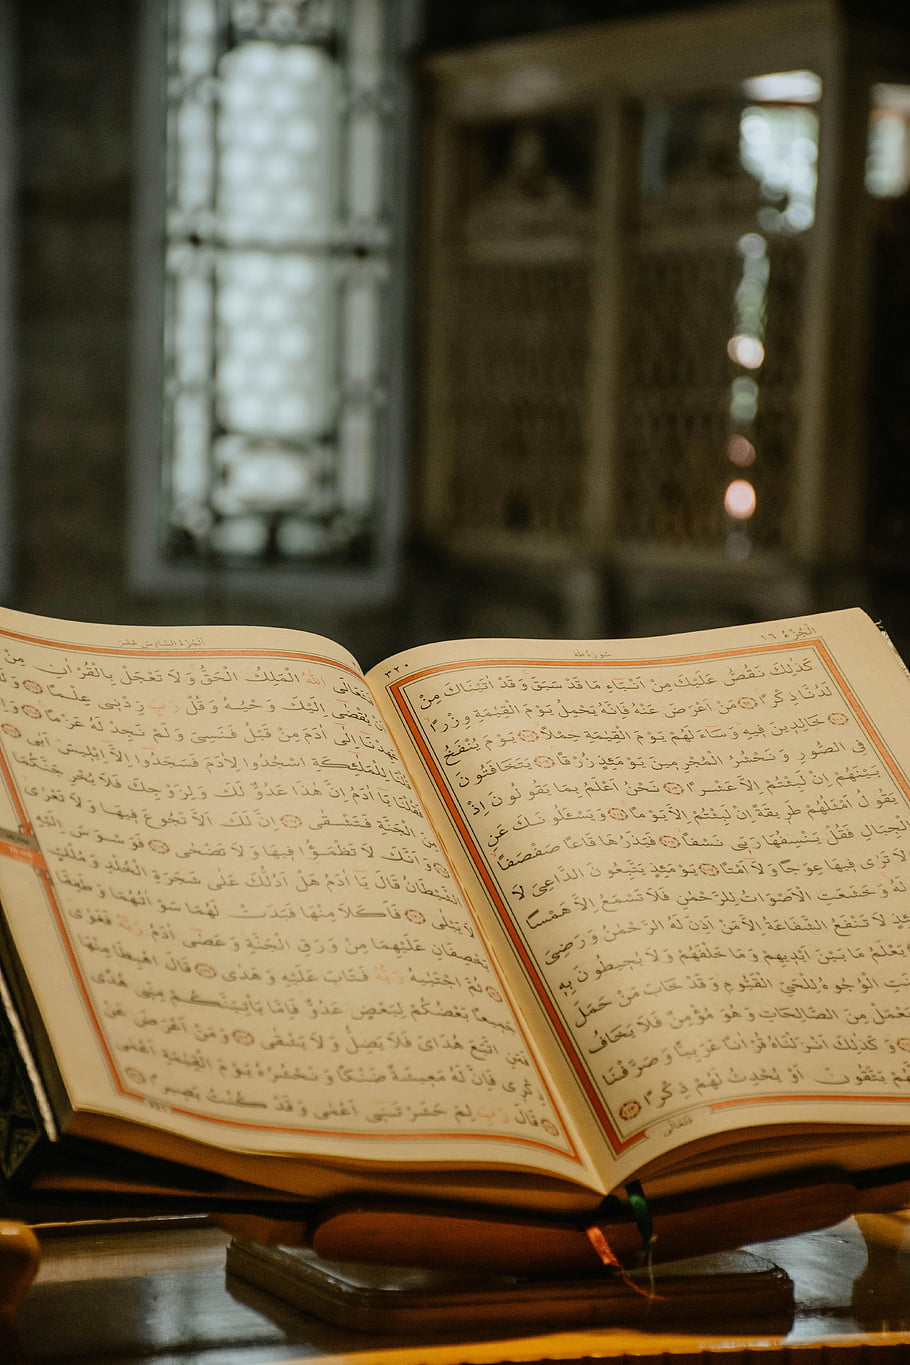 الْجُزْءُ ١٦
سُورَةُ طٰهٰ
٣٢٠
كَذٰلِكَ نَقُصُّ عَلَيْكَ مِنْ اَنْبَٓاءِ مَا قَدْ سَبَقَ وَقَدْ اٰتَيْنَاكَ مِنْ
لَدُنَّا ذِكْرًا مَنْ اَعْرَضَ عَنْهُ فَاِنَّهُ يَحْمِلُ يَوْمَ الْقِيٰمَةِ وِزْرًا
خَالِدِينَ فِيهِ وَسَٓاءَ لَهُمْ يَوْمَ الْقِيٰمَةِ حِمْلًا يَوْمَ يُنْفَخُ
فِي الصُّورِ وَنَحْشُرُ الْمُجْرِمِينَ يَوْمَئِذٍ زُرْقًا يَتَخَافَتُونَ
بَيْنَهُمْ اِنْ لَبِثْتُمْ اِلَّا عَشْرًا نَحْنُ اَعْلَمُ بِمَا يَقُولُونَ اِذْ
يَقُولُ اَمْثَلُهُمْ طَرِيقَةً اِنْ لَبِثْتُمْ اِلَّا يَوْمًا وَيَسْـَٔلُونَكَ عَنِ
الْجِبَالِ فَقُلْ يَنْسِفُهَا رَبِّي نَسْفًا فَيَذَرُهَا قَاعًا صَفْصَفًا
لَا تَرٰى فِيهَا عِوَجًا وَلَٓا اَمْتًا يَوْمَئِذٍ يَتَّبِعُونَ الدَّاعِيَ لَا
لَهُ وَخَشَعَتِ الْاَصْوَاتُ لِلرَّحْمٰنِ فَلَا تَسْمَعُ اِلَّا هَمْسًا
لَا تَنْفَعُ الشَّفَاعَةُ اِلَّا مَنْ اَذِنَ لَهُ الرَّحْمٰنُ وَرَضِيَ
يَعْلَمُ مَا بَيْنَ اَيْدِيهِمْ وَمَا خَلْفَهُمْ وَلَا يُحِيطُونَ بِهِ
الْوُجُوهُ لِلْحَيِّ الْقَيُّومِ وَقَدْ خَابَ مَنْ حَمَلَ
يَعْمَلْ مِنَ الصَّالِحَاتِ وَهُوَ مُؤْمِنٌ فَلَا يَخَافُ
وَكَذٰلِكَ اَنْزَلْنَاهُ قُرْاٰنًا عَرَبِيًّا وَصَرَّفْنَا
يَتَّقُونَ اَوْ يُحْدِثُ لَهُمْ ذِكْرًا
فَتَعَالَى
اَلْجُزْءُ السَّادِسُ عَشَرَ
فَتَعَالَى اللّٰهُ الْمَلِكُ الْحَقُّ وَلَا تَعْجَلْ بِالْقُرْاٰنِ مِنْ
يُقْضٰٓى اِلَيْكَ وَحْيُهُ وَقُلْ رَبِّ زِدْنِي عِلْمًا وَلَقَدْ
عَهِدْنَٓا اِلٰٓى اٰدَمَ مِنْ قَبْلُ فَنَسِيَ وَلَمْ نَجِدْ لَهُ عَزْمًا
قُلْنَا لِلْمَلٰٓئِكَةِ اسْجُدُوا لِاٰدَمَ فَسَجَدُٓوا اِلَّٓا اِبْلِيسَ اَبٰى
فَقُلْنَا يَٓا اٰدَمُ اِنَّ هٰذَا عَدُوٌّ لَكَ وَلِزَوْجِكَ فَلَا يُخْرِجَنَّكُمَا
مِنَ الْجَنَّةِ فَتَشْقٰى اِنَّ لَكَ اَلَّا تَجُوعَ فِيهَا وَلَا تَعْرٰى
وَاَنَّكَ لَا تَظْمَؤُ۬ا فِيهَا وَلَا تَضْحٰى فَوَسْوَسَ اِلَيْهِ
الشَّيْطَانُ قَالَ يَٓا اٰدَمُ هَلْ اَدُلُّكَ عَلٰى شَجَرَةِ الْخُلْدِ وَمُلْكٍ
لَا يَبْلٰى فَاَكَلَا مِنْهَا فَبَدَتْ لَهُمَا سَوْاٰتُهُمَا وَطَفِقَا
يَخْصِفَانِ عَلَيْهِمَا مِنْ وَرَقِ الْجَنَّةِ وَعَصٰٓى اٰدَمُ رَبَّهُ فَغَوٰى
ثُمَّ اجْتَبٰيهُ رَبُّهُ فَتَابَ عَلَيْهِ وَهَدٰى قَالَ اهْبِطَا مِنْهَا
جَمِيعًا بَعْضُكُمْ لِبَعْضٍ عَدُوٌّ فَاِمَّا يَأْتِيَنَّكُمْ مِنِّي هُدًى
فَمَنِ اتَّبَعَ هُدَايَ فَلَا يَضِلُّ وَلَا يَشْقٰى وَمَنْ اَعْرَضَ عَنْ
ذِكْرِي فَاِنَّ لَهُ مَعِيشَةً ضَنْكًا وَنَحْشُرُهُ يَوْمَ الْقِيٰمَةِ اَعْمٰى
قَالَ رَبِّ لِمَ حَشَرْتَنِٓي اَعْمٰى وَقَدْ كُنْتُ بَصِيرًا